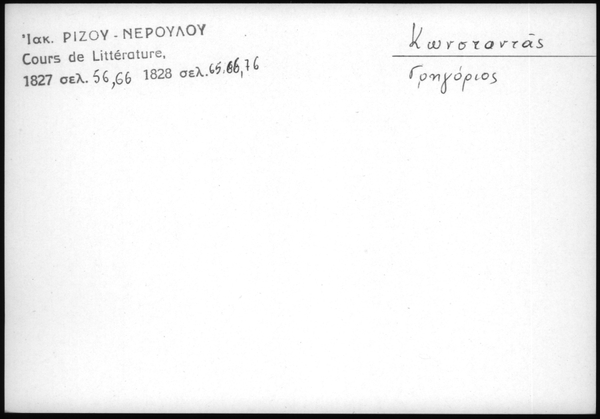 Ἰακ. ΡΙΖΟΥ - ΝΕΡΟΥΛΟΥ
Cours de Littérature,
1827 σελ. 56,66 1828 σελ. 65.66,76
Κωνσταντᾶς
Γρηγόριος